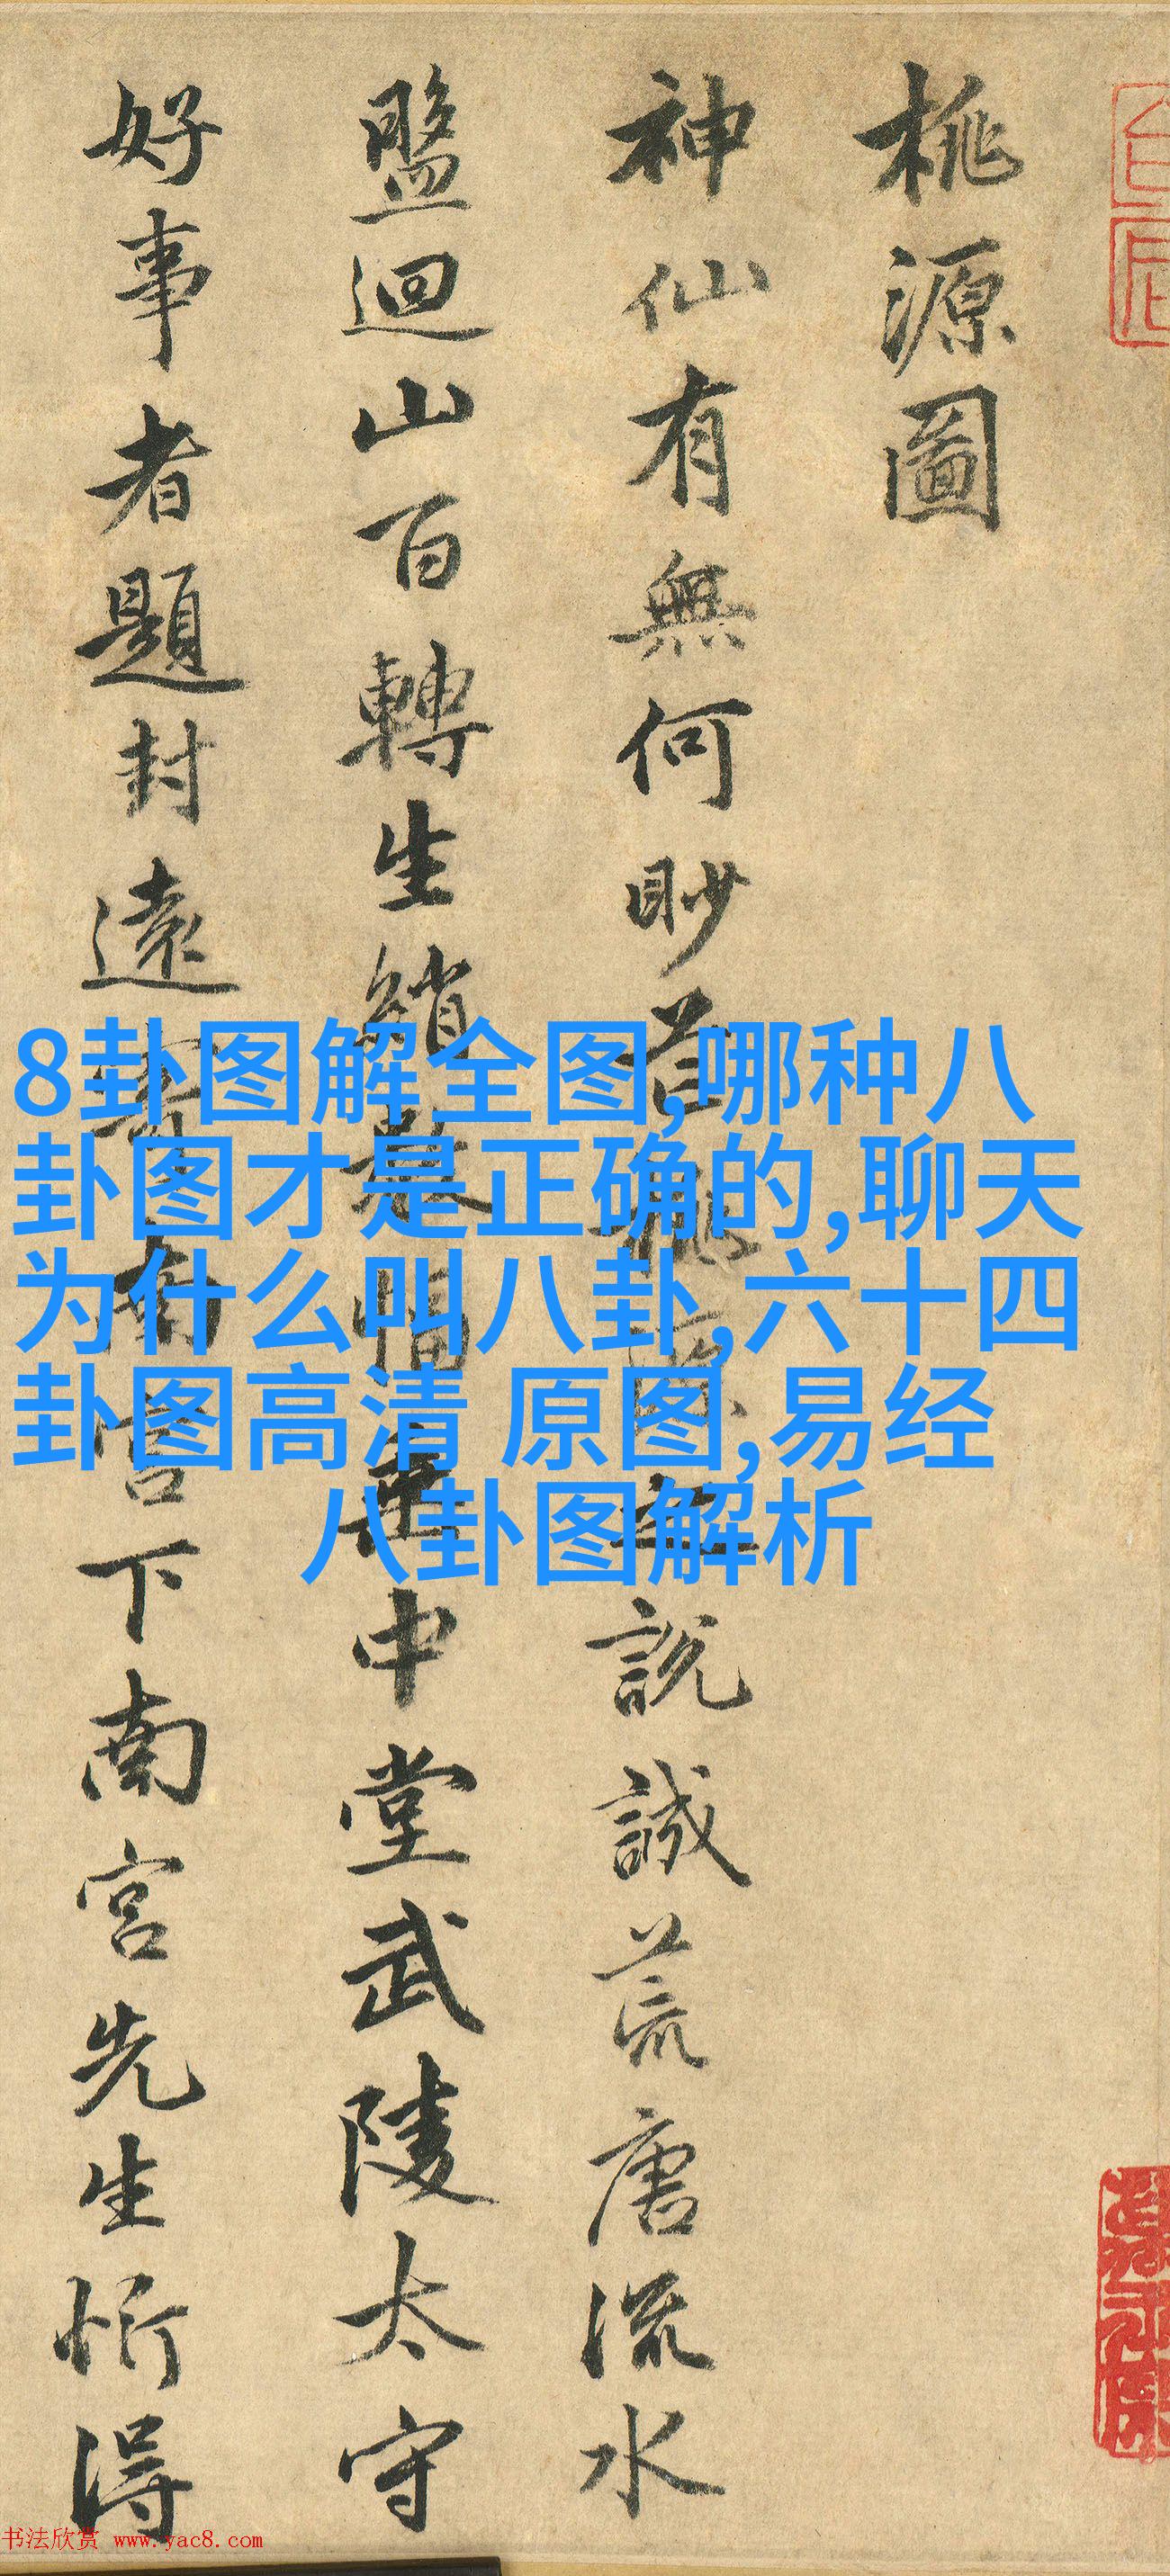 桃源圖
神仙有無何眇芒桃源之說誠荒唐流水
盤迴山百轉生綃數幅垂中堂武陵太守
好事者題封遠寄南宮下南宮先生忻得
8卦图解全图,哪种八
卦图才是正确的,聊天
为什么叫八卦,六十四
卦图高清 原图,易经
八卦图解析
书法欣赏 www.yac8.com